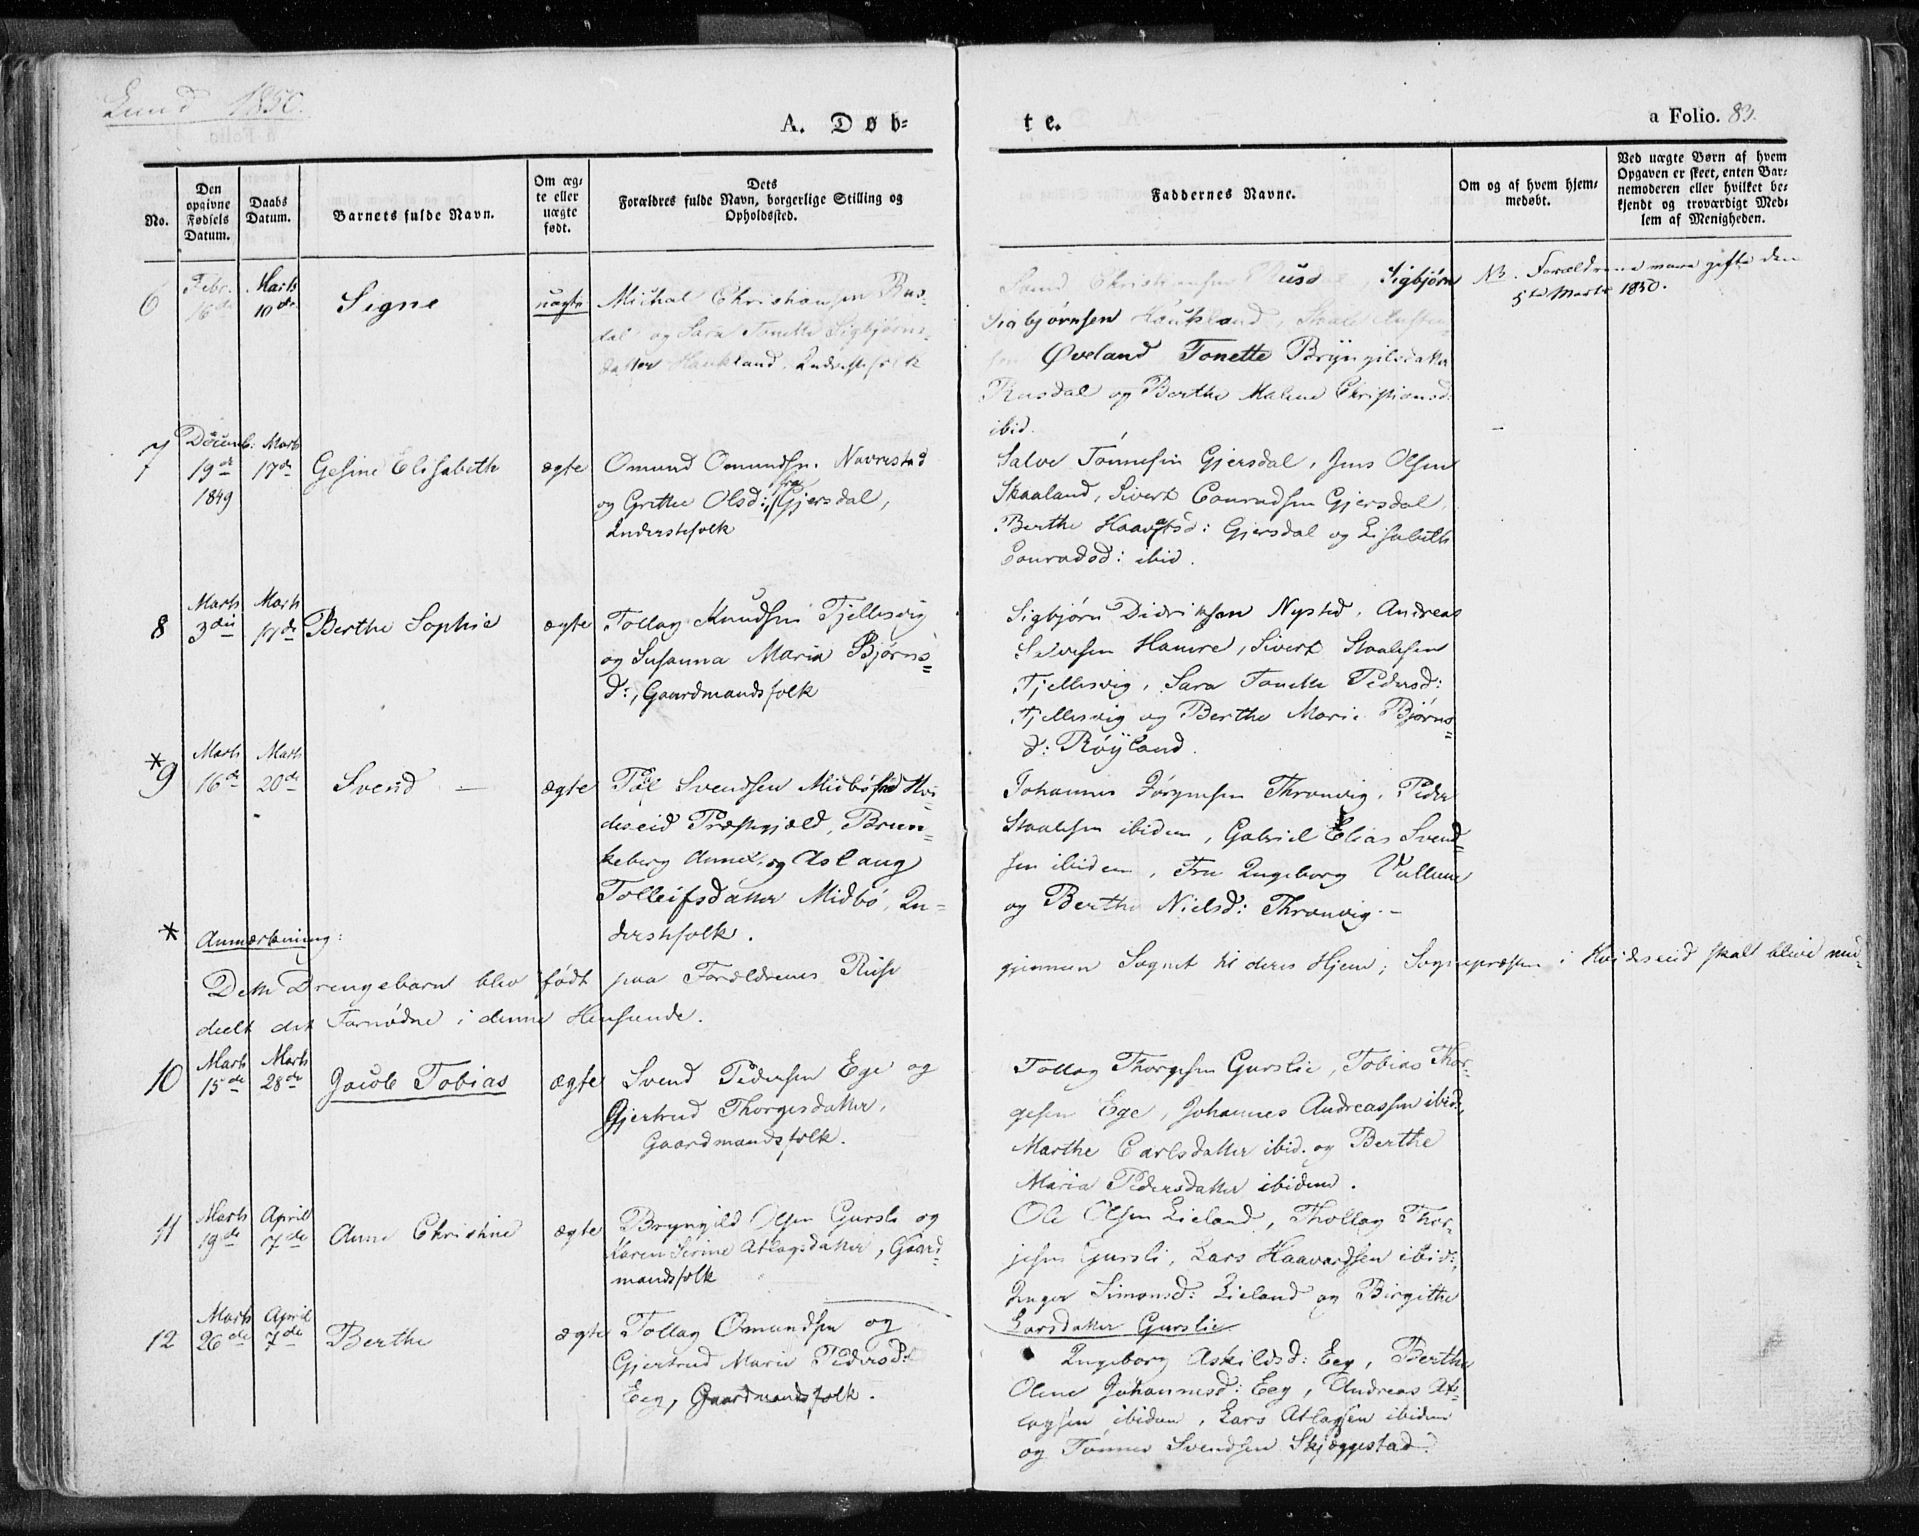 Lund 1850.
A. Døb-
te.
a Folio. 83.
No.
Den
opgivne
Fødsels
Datum.
Daabs
Datum.
Barnets fulde Navn.
Om æg-
te eller
uægte
født.
Dets
Forældres fulde Navn, borgerlige Stilling og
Opholdssted.
Faddernes Navne.
Om og af hvem hjem-
medøbt.
Ved uægte Børn af hvem
Opgaven er skeet, enten Bar-
nemoderen eller hvilket be-
kjendt og troværdigt Med-
lem af Menigheden.
6
Febr.
16de
Marts
10de
Signe
uægte
Michal Christiansen Rus-
dal og Sara Tonette Sigbjørns-
datter Haukland, Inderstefolk
Christiansen Rusd Sigbjørn
Sigbjørnsen Haukland,
Øveland Tonette Bryngilsdatter
Rusdal og Berthe Malene Christiansd:
ibid.
NB. Forældrene vare gifte den
5te Marts 1850.
7
Decemb:
19de
1849
Marts
17de
Gesine Elisabeth
ægte
Omund Omundsn. Navrestad
og Grethe Olsd: fra Gjersdal,
Inderstefolk
Salve Tønnesen Gjersdal, Jens Olsen
Skaaland, Sivert Conradsen Gjersdal,
Berthe Haavatsd: Gjersdal og Lisabeth
Conradsd: ibid.
8
Marts
3die
Marts
17de
Berthe Sophie
ægte
Tollag Knudsen Tjellesvig
og Susanna Maria Bjørns-
d:, Gaardmandsfolk
Sigbjørn Didriksen Nysted, Andreas
Salvesen Hamre, Sivert Staalesen
Tjellesvig, Sara Tonette Pedersd:
Tjellesvig og Berthe Marie Bjørns-
d: Røyland.
*9
Marts
16de
Marts
20de
Svend –
ægte
Tol Svendsen Midbø fra Hvi-
deseid Præstegjæld, Brun-
keberg Annex, og Aslaug
Tolleifsdatter Midbø, In-
derstefolk.
Johannes Jørgensen Thronvig, Peder
Staalesen ibidem, Gabriel Elias Svend-
sen ibidem, Fru Ingeborg Vullum
og Berthe Nielsd: Thronvig. –
* Anmærkning:
Dette Drengebarn blev født paa Forældrenes Reise gjennem Sognet til deres Hjem; Sognepræsten i Hvideseid skal blive med-
deelt det Fornødne i denne Henseende.
10
Marts
15de
Marts
28de
Jacob Tobias
ægte
Svend Pedersen Ege og
Gjertrud Thorgesdatter,
Gaardmandsfolk.
Tollag Thorgesen Gurslie, Tobias Thor-
gesen Ege, Johannes Andreassen ibid.,
Marthe Carlsdatter ibid. og Berthe
Maria Pedersdatter ibidem.
11
Marts
19de
April
7de
Anne Christine
ægte
Bryngild Olsen Gursli og
Karen Serine Atlagsdatter, Gaard-
mandsfolk
Ole Olsen Lieland, Thollag Thor-
jesen Gursli, Lars Haavardsen ibid:,
Inger Simonsd: Lieland og Birgithe
Larsdatter Gurslie
12
Marts
26de
April
7de
Berthe
ægte
Tollag Omundsen og
Gjertrud Marie Pedersd:
Eeg, Gaardmandsfolk.
Ingeborg Askildsd: Eeg, Berthe
Oline Johannesd: Eeg, Andreas At-
lagsen ibidem, Lars Atlagsen ibidem
og Tønnes Svendsen Skjæggestad.